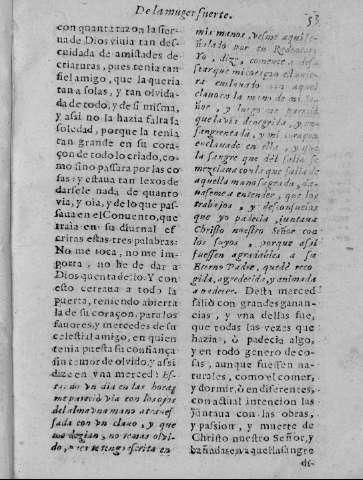 De la muger fuerte.
53
con quanta razon, la sier-
ua de Dios viuia tan des-
cuidada de amistades de
criaturas, pues tenia tan
fiel amigo, que la queria
tan a solas, y tan olvida-
da de todo, y de si misma,
y assi no la hazia falta la
soledad, porque la tenia
tan grande en su cora-
çon de todo lo criado, co-
mo sino passara por las co-
sas: y estaua tan lexos de
darsele nada de quanto
via, y oia, y de lo que pas-
saua en el Conuento, que
traia en su diurnal es-
critas estas tres palabras:
No me toca, no me im-
porta, no he de dar a
Dios quenta dello. Y con
esto cerraua a todo la
puerta, teniendo abierta
la de su coraçon, para los
fauores, y mercedes de su
celestial amigo, en quien
tenia puesta su confiança
sin temor de olvido, y assi
dize en vna merced: Es-
tando vn dia en las horas
me pareciò via con los ojos
del alma vna mano atraues-
sada con vn clauo, y que
me dezian, no temas olvi-
do, que te tengo escrita en
mis manos, vesme aqui se-
ñalado por tu Redentor:
Yo, dize, comence a des-
sear que mi coraçon estuuie-
ra enclauado con aquel
clauo en la mano de mi Se-
ñor, y luego me pareciò
que la via denegrida, y en-
sangrentada, y mi coraçon
enclauado en ella, y que
la sangre que dèl salia se
mezclaua con la que salia de
aquella mano sagrada, dan-
doseme a entender, que los
trabajos, y desconsuelos
que yo padecia, juntaua
Christo nuestro Señor con
los suyos, porque assi
fuessen agradables a su
Eterno Padre, quedè reco-
gida, agradecida, y animada
a padecer. Desta merced
saliò con grandes ganan-
cias, y vna dellas fue,
que todas las vezes que
hazia, ò padecia algo,
y en todo genero de co-
sas, aunque fuessen na-
turales, como el comer,
y dormir, ò en diferentes,
con actual intencion las
juntaua con las obras,
y passion, y muerte de
Christo nuestro Señor, y
bañadas en aquella sangre
di-